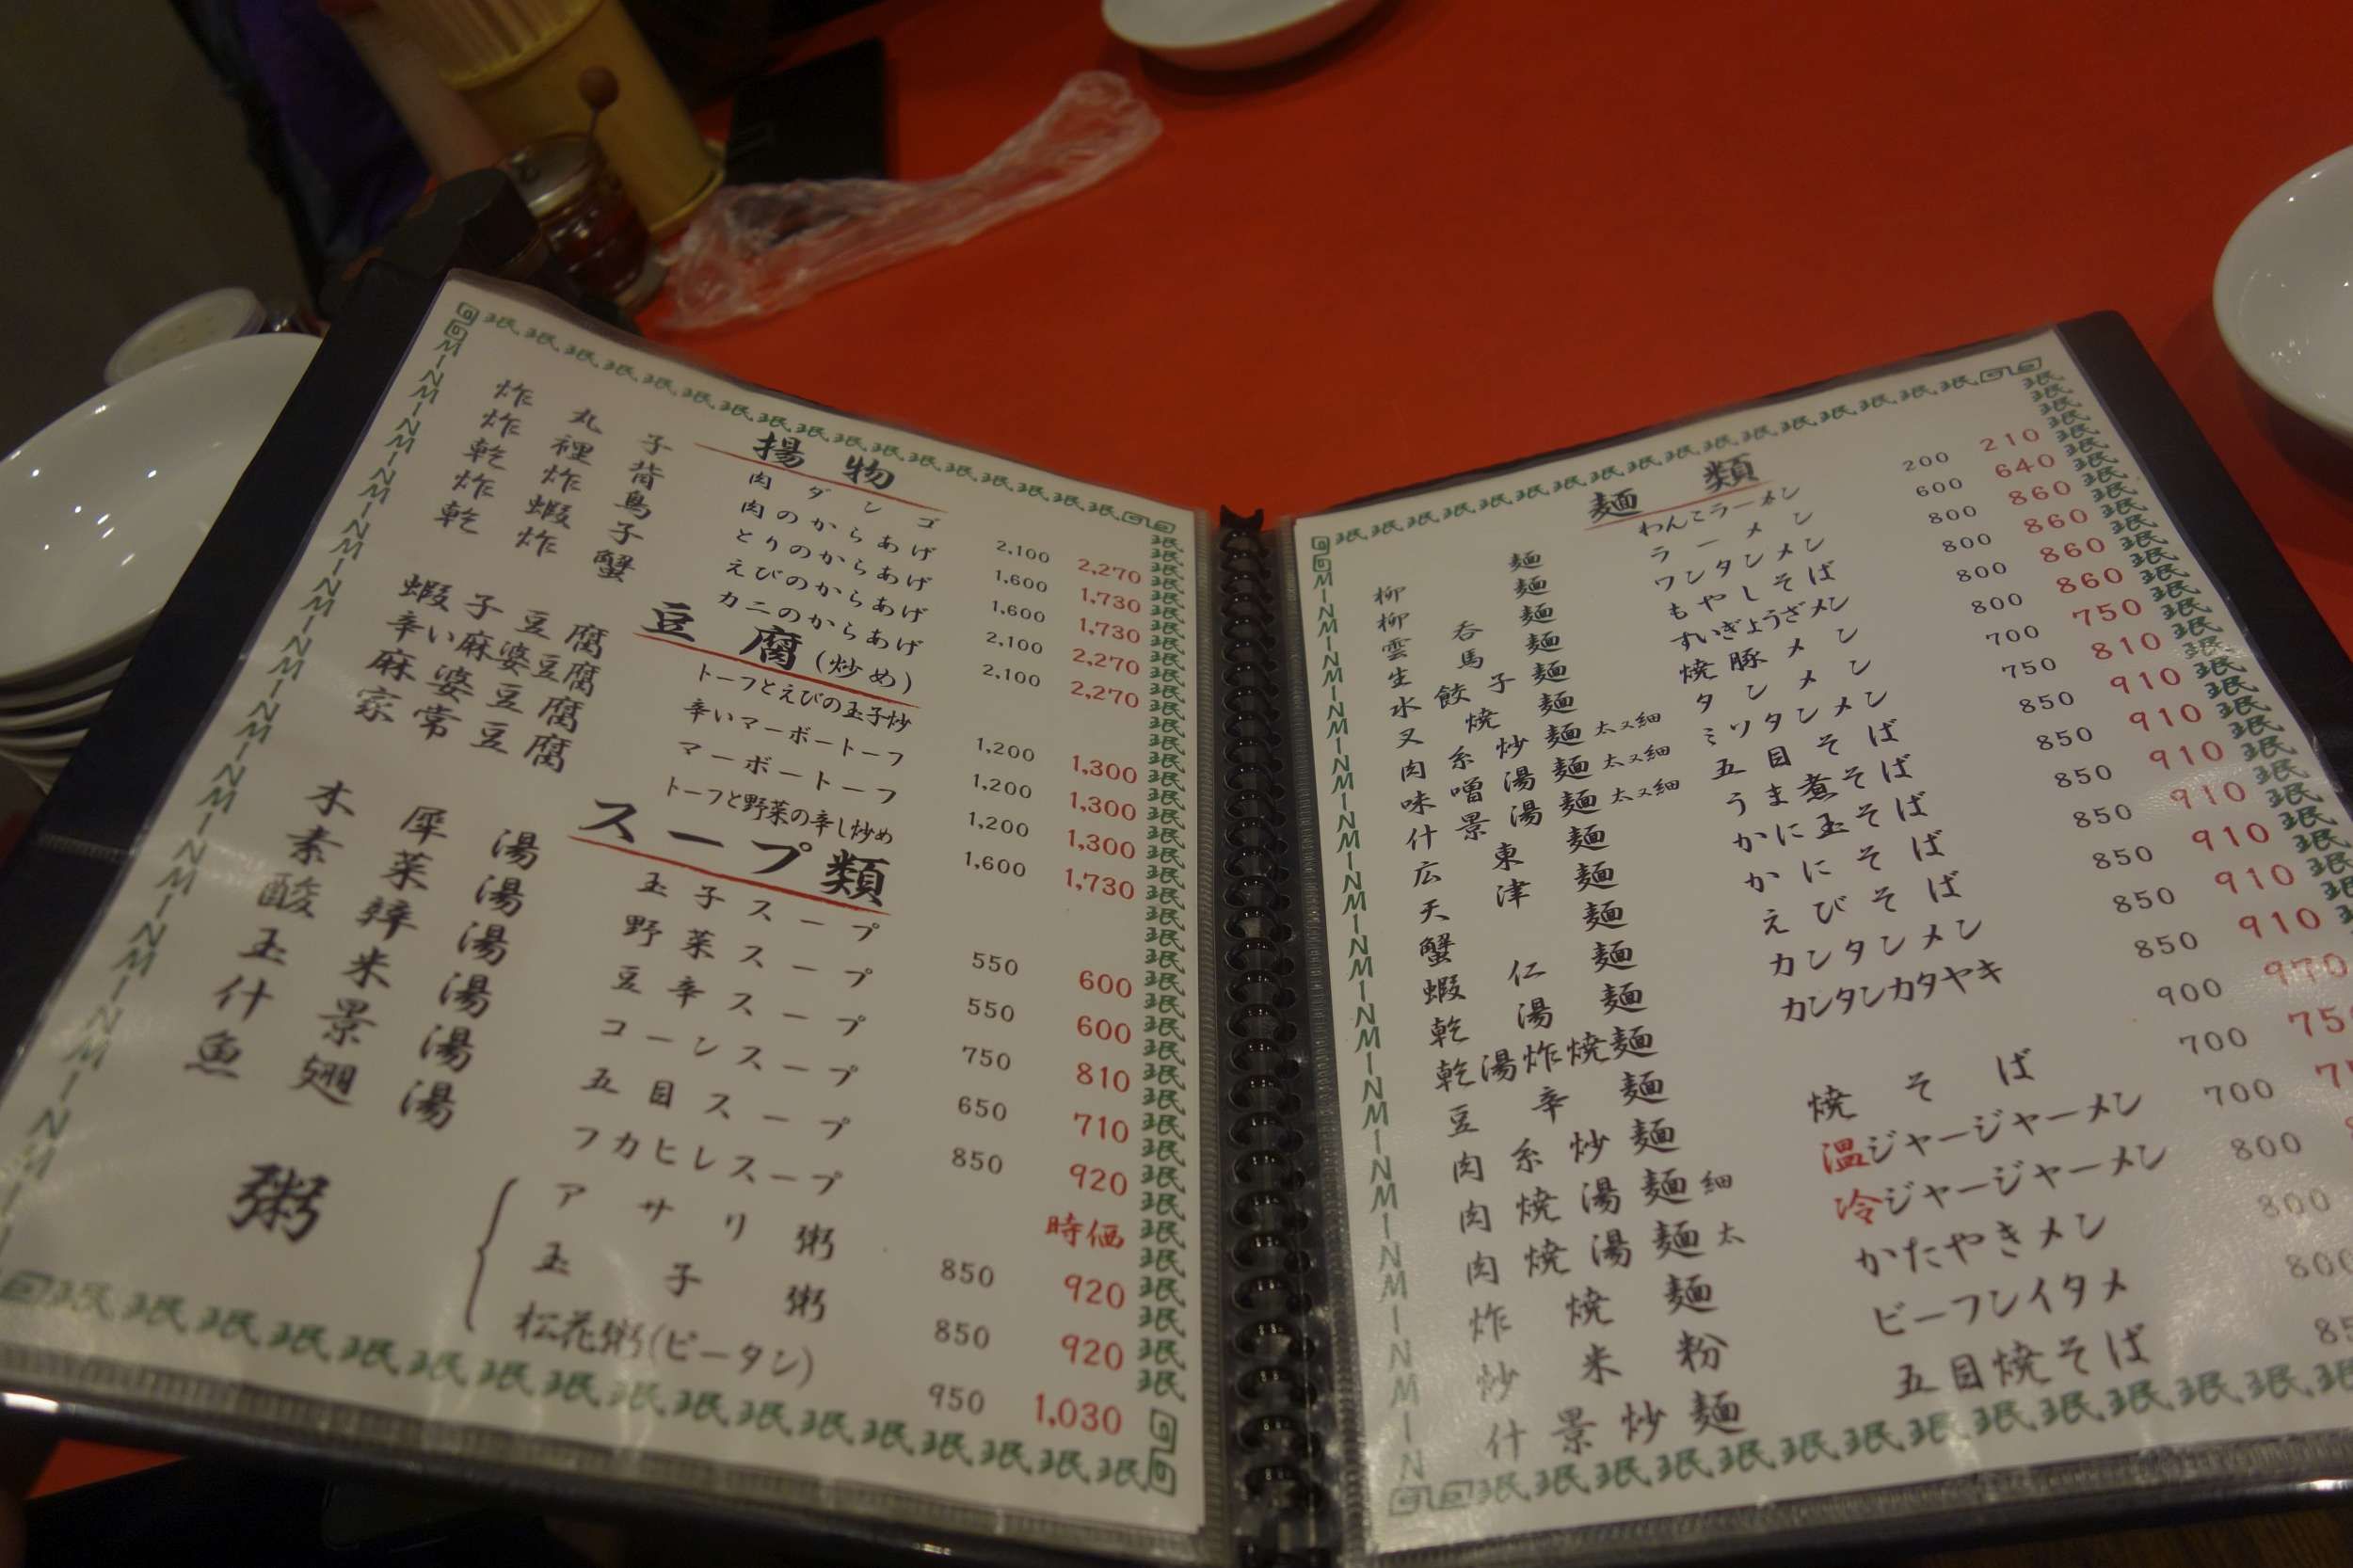 揚物
炸丸子 肉ダンゴ 2,100 2,270
炸裡背 肉のからあげ 1,600 1,730
乾炸鳥 とりのからあげ 1,600 1,730
炸蝦子 えびのからあげ 2,100 2,270
乾炸蟹 カニのからあげ 2,100 2,270
豆腐(炒め)
蝦子豆腐 トーフとえびの玉子炒 1,200 1,300
辛い麻婆豆腐 辛いマーボートーフ 1,200 1,300
麻婆豆腐 マーボートーフ 1,200 1,300
家常豆腐 トーフと野菜の辛し炒め 1,600 1,730
スープ類
木犀湯 玉子スープ 550 600
素菜湯 野菜スープ 550 600
酸辣湯 豆辛スープ 750 810
玉米湯 コーンスープ 650 710
什景湯 五目スープ 850 920
魚翅湯 フカヒレスープ 時価
粥
アサリ粥 850 920
玉子粥 850 920
松花粥(ピータン) 950 1,030
MINMIN
珉珉
麺類
柳麺 わんこラーメン 200 210
柳麺 ラーメン 600 640
雲呑麺 ワンタンメン 800 860
生馬麺 もやしそば 800 860
水餃子麺 すいぎょうざメン 800 860
叉焼麺 焼豚メン 800 860
肉糸炒麺 太又細 タンメン 700 750
味噌湯麺 太又細 ミソタンメン 750 810
什景湯麺 太又細 五目そば 850 910
広東麺 うま煮そば 850 910
天津麺 かに玉そば 850 910
蟹麺 かにそば 850 910
蝦仁麺 えびそば 850 910
乾湯麺 カンタンメン 850 910
乾湯炸焼麺 カンタンカタヤキ 850 910
豆辛麺 900 970
肉糸炒麺 焼そば 700
肉焼湯麺 細 温ジャージャーメン 700
肉焼湯麺 太 冷ジャージャーメン 800
炸焼麺 かたやきメン 800
炒米粉 ビーフンイタメ 800
什景炒麺 五目焼そば